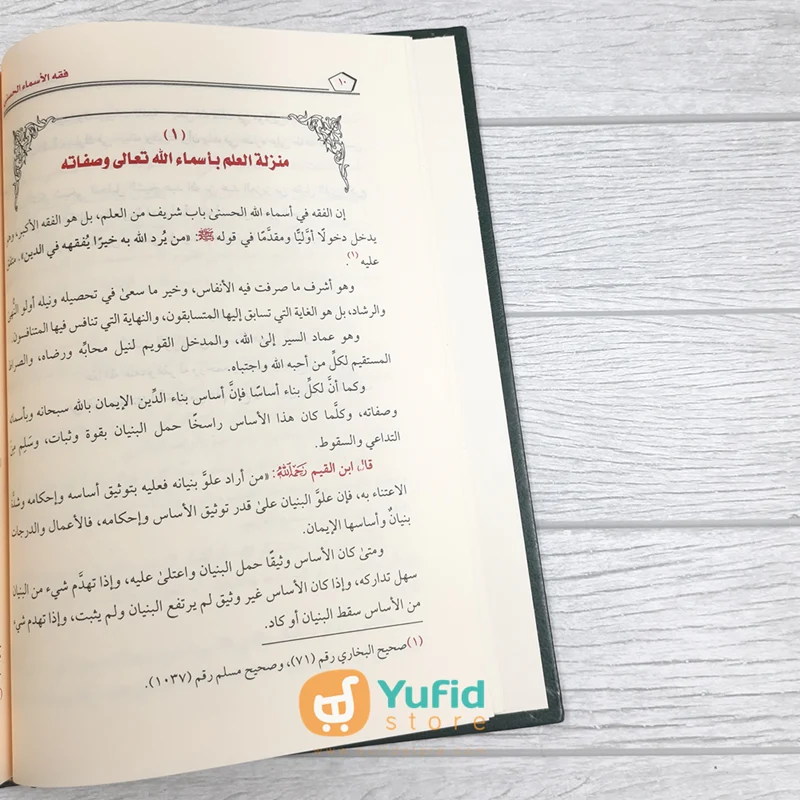 ١٠
فقه الأسماء الحسنى
(١)
منزلة العلم بأسماء الله تعالى وصفاته
إن الفقه في أسماء الله الحسنىٰ باب شريف من العلم، بل هو الفقه الأكبر، وهو
يدخل دخولًا أوَّليًّا ومقدَّمًا في قوله ﷺ: «من يُرد الله به خيرًا يُفقهه في الدين». متفق
عليه (١).
وهو أشرف ما صرفت فيه الأنفاس، وخير ما سعىٰ في تحصيله ونيله أولو النُّهىٰ
والرشاد، بل هو الغاية التي تسابق إليها المتسابقون، والنهاية التي تنافس فيها المتنافسون.
وهو عماد السير إلىٰ الله، والمدخل القويم لنيل محابِّه ورضاه، والصراط
المستقيم لكلِّ من أحبه الله واجتباه.
وكما أنَّ لكلِّ بناء أساسًا فإنَّ أساس بناء الدِّين الإيمان بالله سبحانه وبأسمائه
وصفاته، وكلَّما كان هذا الأساس راسخًا حمل البنيان بقوة وثبات، وسَلِم مِنَ
التداعي والسقوط.
قال ابن القيم رَحِمَهُ اللهُ: «من أراد علوَّ بنيانه فعليه بتوثيق أساسه وإحكامه وشدَّة
الاعتناء به، فإن علوَّ البنيان علىٰ قدر توثيق الأساس وإحكامه، فالأعمال والدرجات
بنيانٌ وأساسها الإيمان.
ومتىٰ كان الأساس وثيقًا حمل البنيان واعتلىٰ عليه، وإذا تهدَّم شيء من البنيان
سهل تداركه، وإذا كان الأساس غير وثيق لم يرتفع البنيان ولم يثبت، وإذا تهدم شيء
من الأساس سقط البنيان أو كاد.
(١) صحيح البخاري رقم (٧١)، وصحيح مسلم رقم (١٠٣٧).
Yufid
store